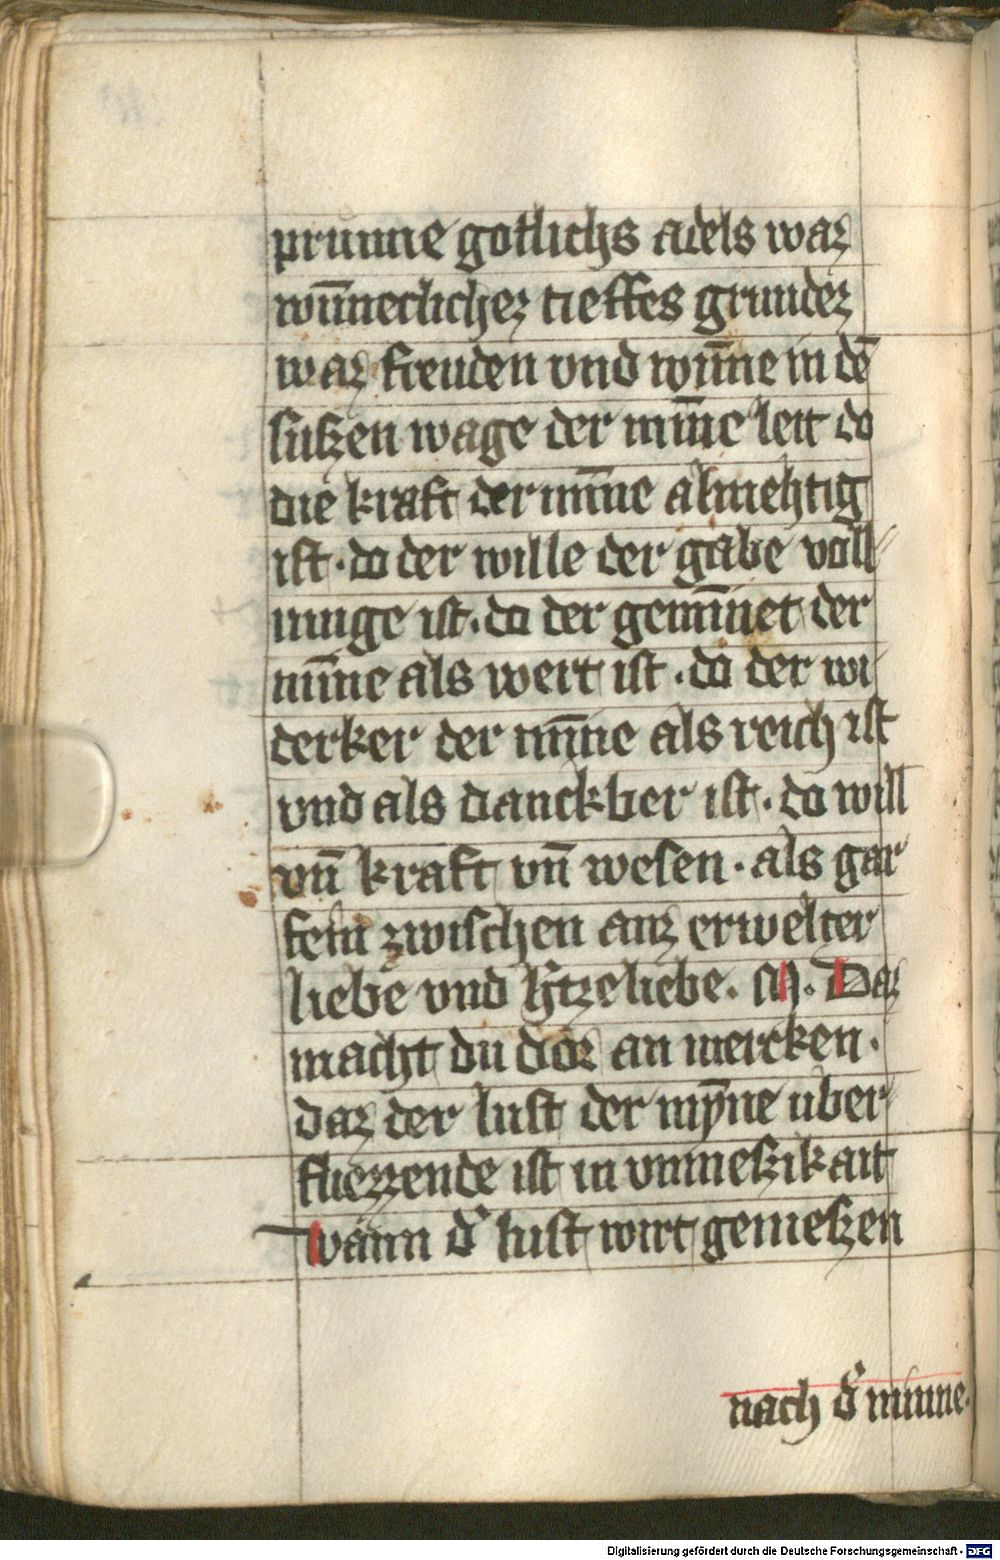 prunne gotlichs adels waz
wūneclichez tieffes grundez
waz freuden vnd wūne in dē
suʒʒen wage der mīne leit do
die kraft der mīne almehtig
ist · do der wille der gabe voll
nuge ist · do der gemīnet der
mīne als wert ist · do der wi
derker der mīne als reich ist
vnd als danckber ist · do will
vn̄ kraft vn̄ wesen · als gar
sein zwischen ainz erwelter
liebe vnd h'tze liebe · M · Daz
macht du dor an mercken ·
daz der lust der mȳne uber
fliezzende ist in vnmeszikait
wann d' lust wirt gemeszen
nach d' minne ·
Digitalisierung gefördert durch die Deutsche Forschungsgemeinschaft - DFG